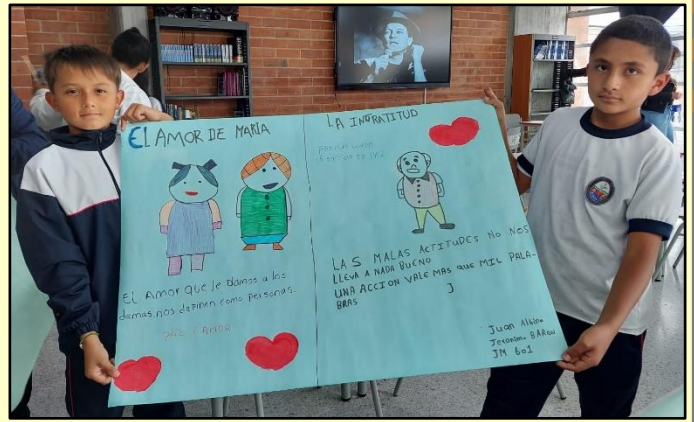 EL AMOR DE MARÍA
EL AMOr que le damos a los
damas, nos definen como personas.
PAZ Y AMOR
LA INGRATITUD
LAS MALAS ACTITUDES NO NOS
LLEVA A NADA BUENO
UNA ACCION VALE MAS que MIL PALA-
BRAS
J
Juan Albino
Jeronimo
JM 601